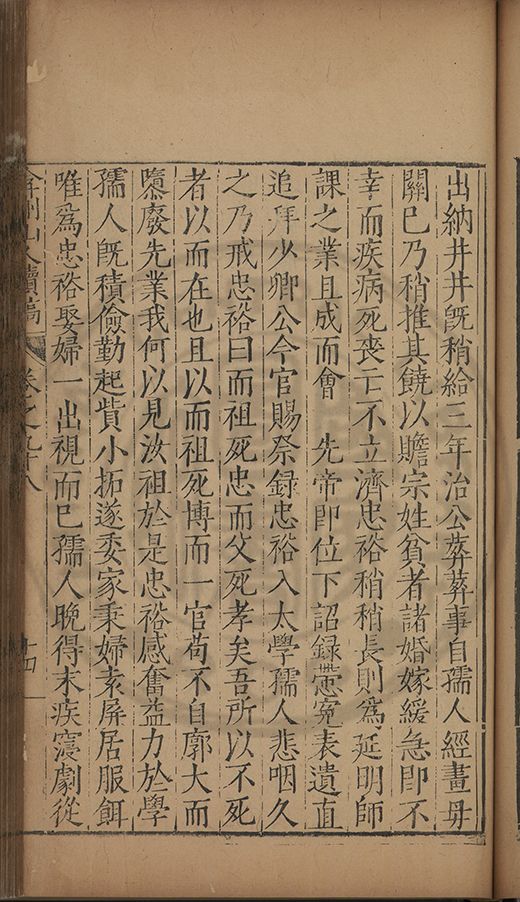 出納井井旣稍給三年治公葬葬事自孺人經畫毋
闕已乃稍推其饒以贍宗姓貧者諸婚嫁緩急卽不
幸而疾病死喪亡不立濟忠裕稍稍長則爲延明師
課之業且成而會　先帝卽位下詔録愍寃表遺直
追拜少卿公今官賜祭録忠裕入太學孺人悲咽久
之乃戒忠裕曰而祖死忠而父死孝矣吾所以不死
者以而在也且以而祖死博而一官苟不自廓大而
隳廢先業我何以見汝祖於是忠裕感奮益力於學
孺人旣積儉勤起貲小拓遂委家秉婦素屏居服餌
唯爲忠裕娶婦一出視而已孺人晩得末疾寖劇從
弇州山人續稿
卷之九十八
十四